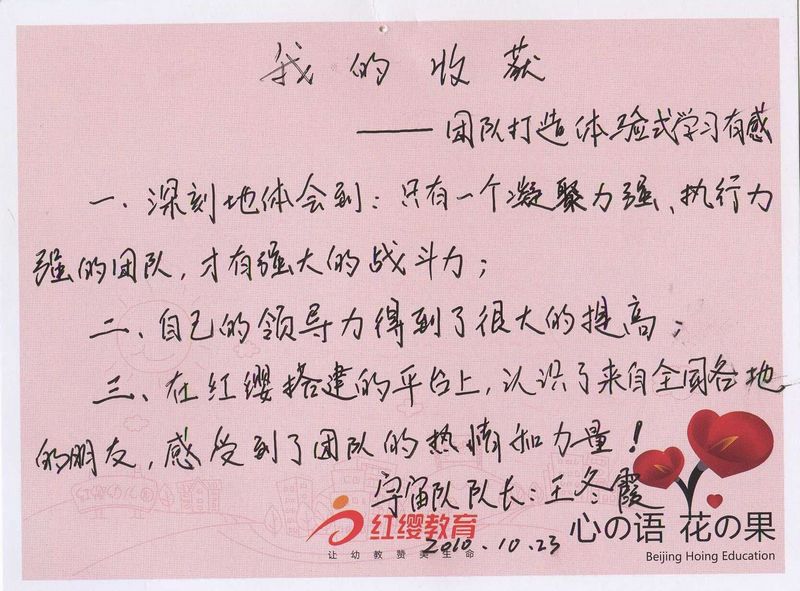 我的收获
——团队打造体验式学习有感
一、深刻地体会到：只有一个凝聚力强、执行力
强的团队，才有强大的战斗力；
二、自己的领导力得到了很大的提高；
三、在红缨搭建的平台上，认识了来自全国各地
的朋友，感受到了团队的热情和力量！
宇宙队队长：王冬霞
2010.10.23
红缨教育
让幼教赞美生命
心の语 花の果
Beijing Hoing Education